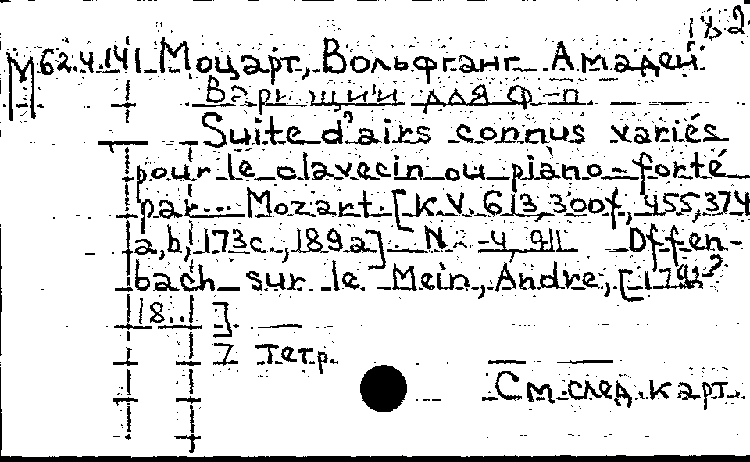 18.2
М 62.4.141 Моцарт, Вольфганг Амадей
Вариации для ф-п.
Suite d'airs connus variés
pour le clavecin ou piano-forté
par... Mozart. [K.V. 613, 300f, 455, 374
a, b, 173c., 189a]. N. -4, 911 Offen-
bach sur le Mein, Andre, [179
18.. ].
7 тетр.
См. след. карт.